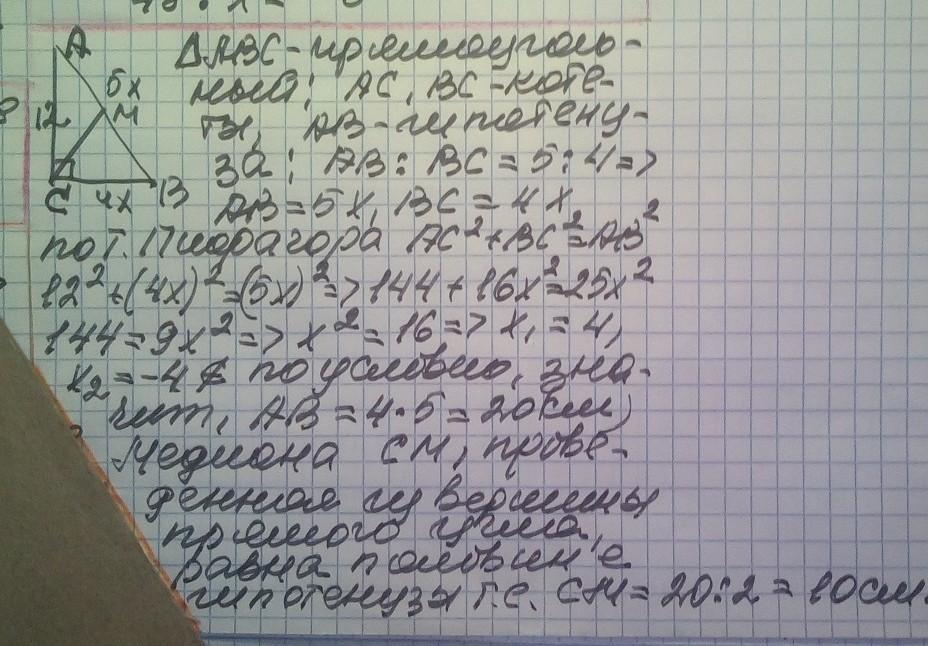 A
5x
M
12
C 4x B
ΔABC-прямоуголь-
ный; AC, BC-кате-
ты, AB-гипотену-
за; AB:BC=5:4=>
AB=5x, BC=4x
по т. Пифагора AC²+BC²=AB²
12²+(4x)²=(5x)²=>144+16x²=25x²
144=9x²=>x²=16=>x₁=4,
x₂=-4 ∉ по условию, зна-
чит, AB=4·5=20(см)
Медиана CM, прове-
денная из вершины
прямого угла,
равна половине
гипотенузы т.е. CM=20:2=10см.